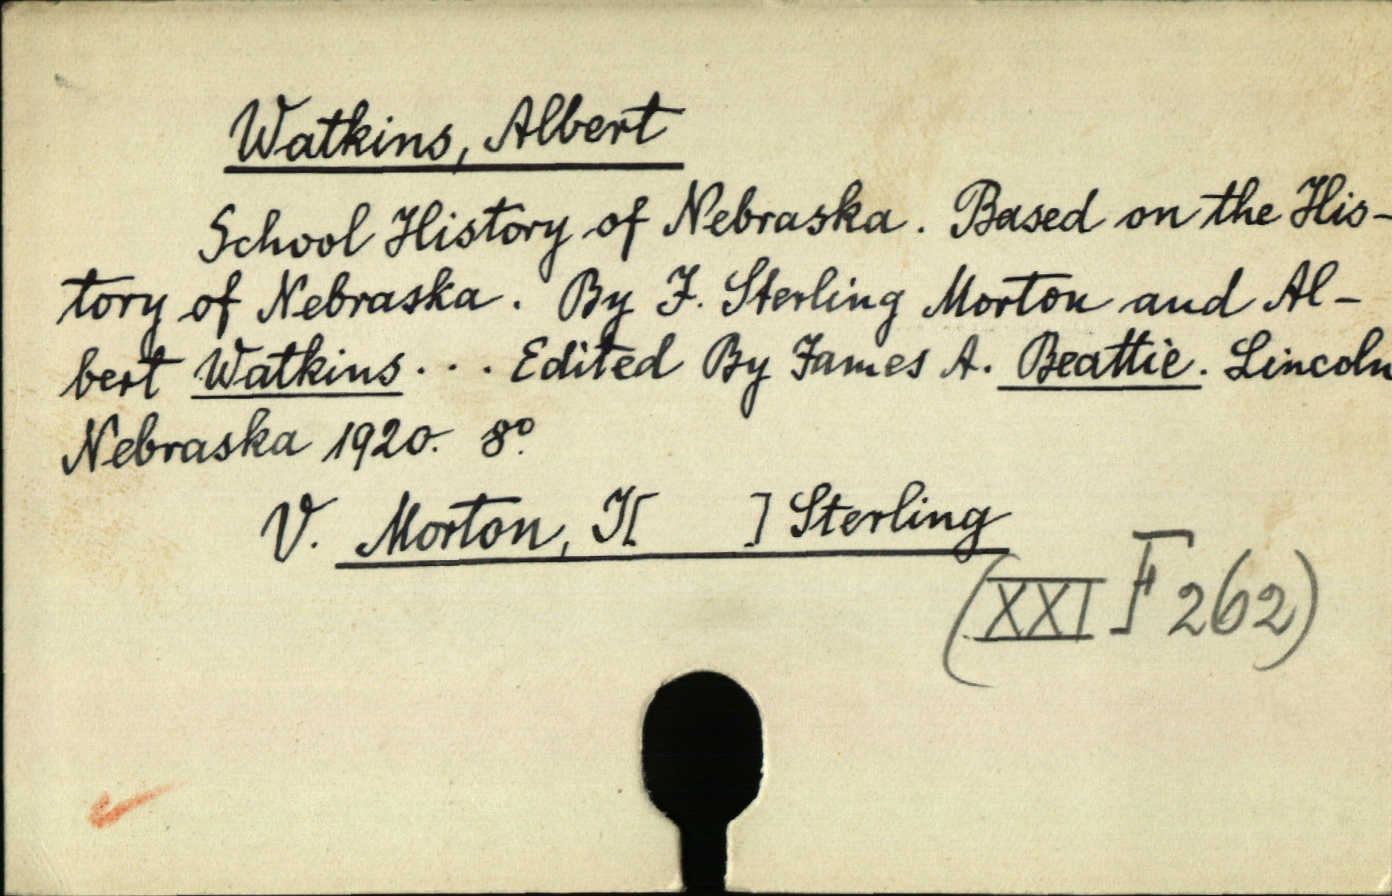 Watkins, Albert
School History of Nebraska. Based on the His-
tory of Nebraska. By J. Sterling Morton and Al-
bert Watkins... Edited By James A. Beattie. Lincoln
Nebraska 1920. 8º.
V. Morton, J[ ] Sterling
(XXI F 262)